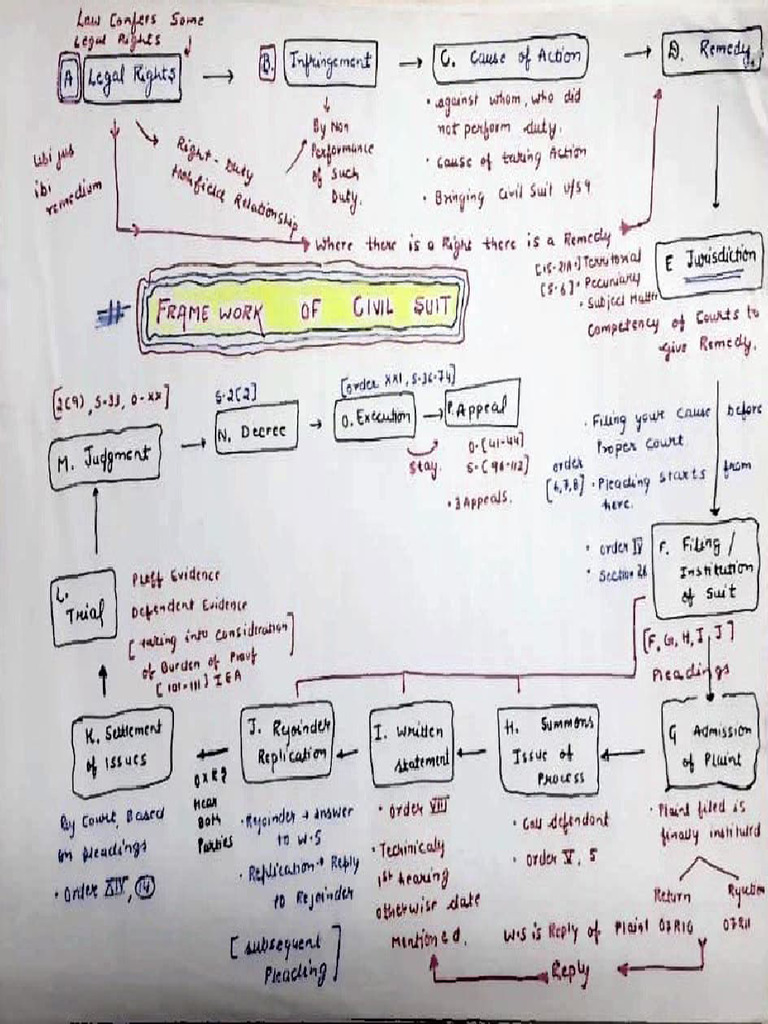 Law Confers Some
Legal Rights
A Legal Rights
B. Infringement
C. Cause of Action
D. Remedy
ubi jus
ibi
remedium
Right - Duty
Relationship
By Non
Performance
of Such
Duty.
• against whom, who did
not perform duty.
• cause of taking Action
• Bringing Civil Suit u/s 9
Where there is a Right there is a Remedy
E Jurisdiction
Territorial
[S-6] • Pecuniary
• Subject Matter
Competency of Courts to
give Remedy.
# FRAMEWORK OF CIVIL SUIT
[2(9), S-33, O-XX]
M. Judgment
S-2[2]
N. Decree
[order XXI, S-36-74]
O. Execution
P. Appeal
Stay.
O-[41-44]
S-[96-112]
• 3 Appeals.
• Filing your cause before
Proper court.
order
[6,7,8] • Pleading starts from
here.
• order IV
• Section 26
F. Filing /
Institution
of Suit
[F, G, H, I, J]
Pleadings
L.
Trial
Pteff Evidence
Dependent Evidence
[taking into consideration
of Burden of Prouf]
[101-111] IEA
K. Settlement
of Issues
J. Rejoinder
Replication
I. Written
Statement
H. Summons
Issue of
Process
G Admission
of Plaint
By Court, Based
on pleadings
• Order XIV, 14
Hear
Both
Parties
• Rejoinder → answer
to W.S
• Replication → Reply
to Rejoinder
[subsequent
Pleading]
• Order VIII
• Techinicaly
1st hearing
otherwise date
Mentioned.
• Call defendant
• Order V, 5
• Plaint filed is
finally instituted
Return
O7R10
O7R11
W.S is Reply of Plaint
Reply